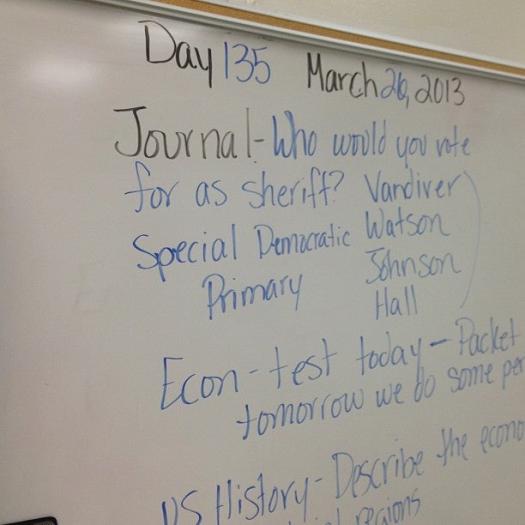 Day 135 March 26, 2013
Journal - Who would you vote
for as sheriff? Vandiver
Special Democratic Watson
Primary Johnson
Hall
Econ - test today - Packet
tomorrow we do some
US History - Describe the
regions